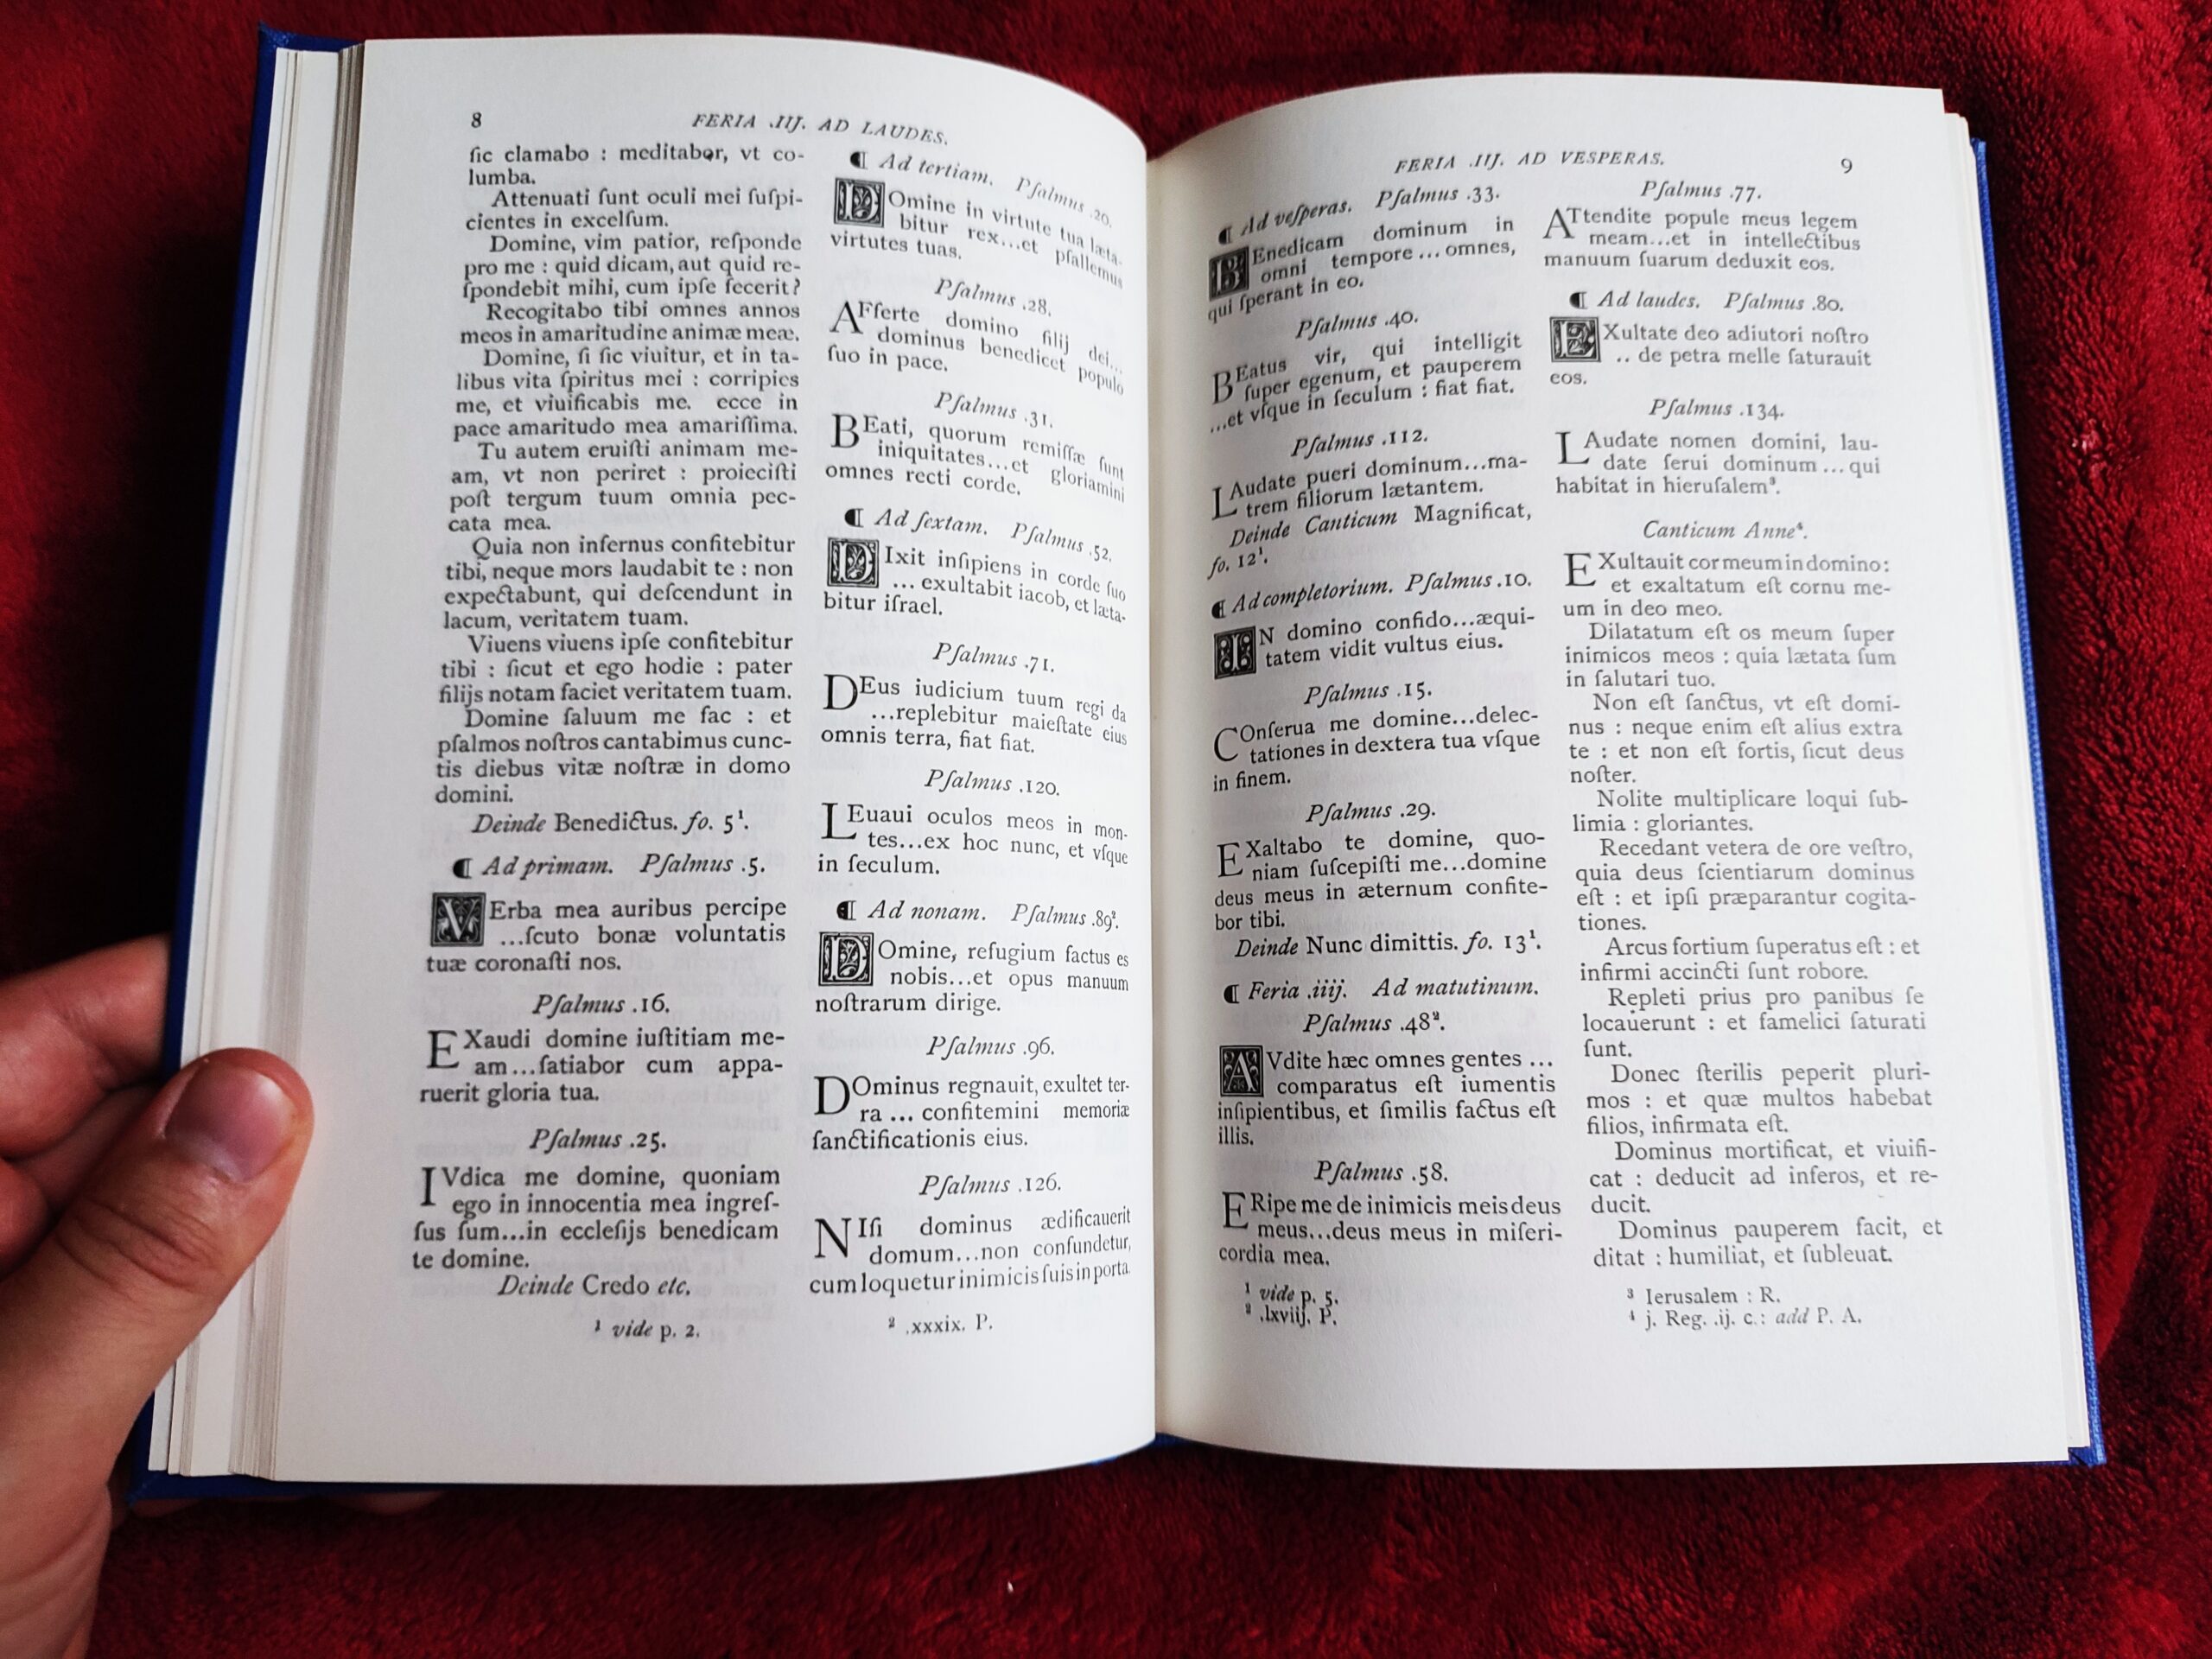 8
FERIA .IIJ. AD LAUDES.
ſic clamabo : meditabor, vt co-
lumba.
Attenuati ſunt oculi mei ſuſpi-
cientes in excelſum.
Domine, vim patior, reſponde
pro me : quid dicam, aut quid re-
ſpondebit mihi, cum ipſe fecerit?
Recogitabo tibi omnes annos
meos in amaritudine animæ meæ.
Domine, ſi ſic viuitur, et in ta-
libus vita ſpiritus mei : corripies
me, et viuificabis me. ecce in
pace amaritudo mea amariſſima.
Tu autem eruiſti animam me-
am, vt non periret : proieciſti
poſt tergum tuum omnia pec-
cata mea.
Quia non infernus confitebitur
tibi, neque mors laudabit te : non
expectabunt, qui deſcendunt in
lacum, veritatem tuam.
Viuens viuens ipſe confitebitur
tibi : ſicut et ego hodie : pater
filijs notam faciet veritatem tuam.
Domine ſaluum me fac : et
pſalmos noſtros cantabimus cunc-
tis diebus vitæ noſtræ in domo
domini.
Deinde Benedictus. fo. 5¹.
¶ Ad primam. Pſalmus .5.
VErba mea auribus percipe
...ſcuto bonæ voluntatis
tuæ coronaſti nos.
Pſalmus .16.
EXaudi domine iuſtitiam me-
am...ſatiabor cum appa-
ruerit gloria tua.
Pſalmus .25.
IVdica me domine, quoniam
ego in innocentia mea ingreſ-
ſus ſum...in eccleſijs benedicam
te domine.
Deinde Credo etc.
¹ vide p. 2.
¶ Ad tertiam. Pſalmus .20.
DOmine in virtute tua læta-
bitur rex...et pſallemus
virtutes tuas.
Pſalmus .28.
AFferte domino filij dei...
dominus benedicet populo
ſuo in pace.
Pſalmus .31.
BEati, quorum remiſſæ ſunt
iniquitates...et gloriamini
omnes recti corde.
¶ Ad ſextam. Pſalmus .52.
DIxit inſipiens in corde ſuo
... exultabit iacob, et læta-
bitur iſrael.
Pſalmus .71.
DEus iudicium tuum regi da
...replebitur maieſtate eius
omnis terra, fiat fiat.
Pſalmus .120.
LEuaui oculos meos in mon-
tes...ex hoc nunc, et vſque
in ſeculum.
¶ Ad nonam. Pſalmus .89².
DOmine, refugium factus es
nobis...et opus manuum
noſtrarum dirige.
Pſalmus .96.
DOminus regnauit, exultet ter-
ra ... confitemini memoriæ
ſanctificationis eius.
Pſalmus .126.
NIſi dominus ædificauerit
domum...non confundetur,
cum loquetur inimicis ſuis in porta.
² .xxxix. P.
FERIA .IIJ. AD VESPERAS.
9
¶ Ad veſperas. Pſalmus .33.
BEnedicam dominum in
omni tempore ... omnes,
qui ſperant in eo.
Pſalmus .40.
BEatus vir, qui intelligit
ſuper egenum, et pauperem
...et vſque in ſeculum : fiat fiat.
Pſalmus .112.
LAudate pueri dominum...ma-
trem filiorum lætantem.
Deinde Canticum Magnificat,
fo. 12¹.
¶ Ad completorium. Pſalmus .10.
IN domino confido...æqui-
tatem vidit vultus eius.
Pſalmus .15.
COnſerua me domine...delec-
tationes in dextera tua vſque
in finem.
Pſalmus .29.
EXaltabo te domine, quo-
niam ſuſcepiſti me...domine
deus meus in æternum confite-
bor tibi.
Deinde Nunc dimittis. fo. 13¹.
¶ Feria .iiij. Ad matutinum.
Pſalmus .48².
AVdite hæc omnes gentes ...
comparatus eſt iumentis
inſipientibus, et ſimilis factus eſt
illis.
Pſalmus .58.
ERipe me de inimicis meis deus
meus...deus meus in miſeri-
cordia mea.
¹ vide p. 5.
² .lxviij. P.
Pſalmus .77.
ATtendite popule meus legem
meam...et in intellectibus
manuum ſuarum deduxit eos.
¶ Ad laudes. Pſalmus .80.
EXultate deo adiutori noſtro
.. de petra melle ſaturauit
eos.
Pſalmus .134.
LAudate nomen domini, lau-
date ſerui dominum ... qui
habitat in hieruſalem³.
Canticum Anne⁴.
EXultauit cor meum in domino :
et exaltatum eſt cornu me-
um in deo meo.
Dilatatum eſt os meum ſuper
inimicos meos : quia lætata ſum
in ſalutari tuo.
Non eſt ſanctus, vt eſt domi-
nus : neque enim eſt alius extra
te : et non eſt fortis, ſicut deus
noſter.
Nolite multiplicare loqui ſub-
limia : gloriantes.
Recedant vetera de ore veſtro,
quia deus ſcientiarum dominus
eſt : et ipſi præparantur cogita-
tiones.
Arcus fortium ſuperatus eſt : et
infirmi accincti ſunt robore.
Repleti prius pro panibus ſe
locauerunt : et famelici ſaturati
ſunt.
Donec ſterilis peperit pluri-
mos : et quæ multos habebat
filios, infirmata eſt.
Dominus mortificat, et viuifi-
cat : deducit ad inferos, et re-
ducit.
Dominus pauperem facit, et
ditat : humiliat, et ſubleuat.
³ Ierusalem : R.
⁴ j. Reg. .ij. c.: add P. A.